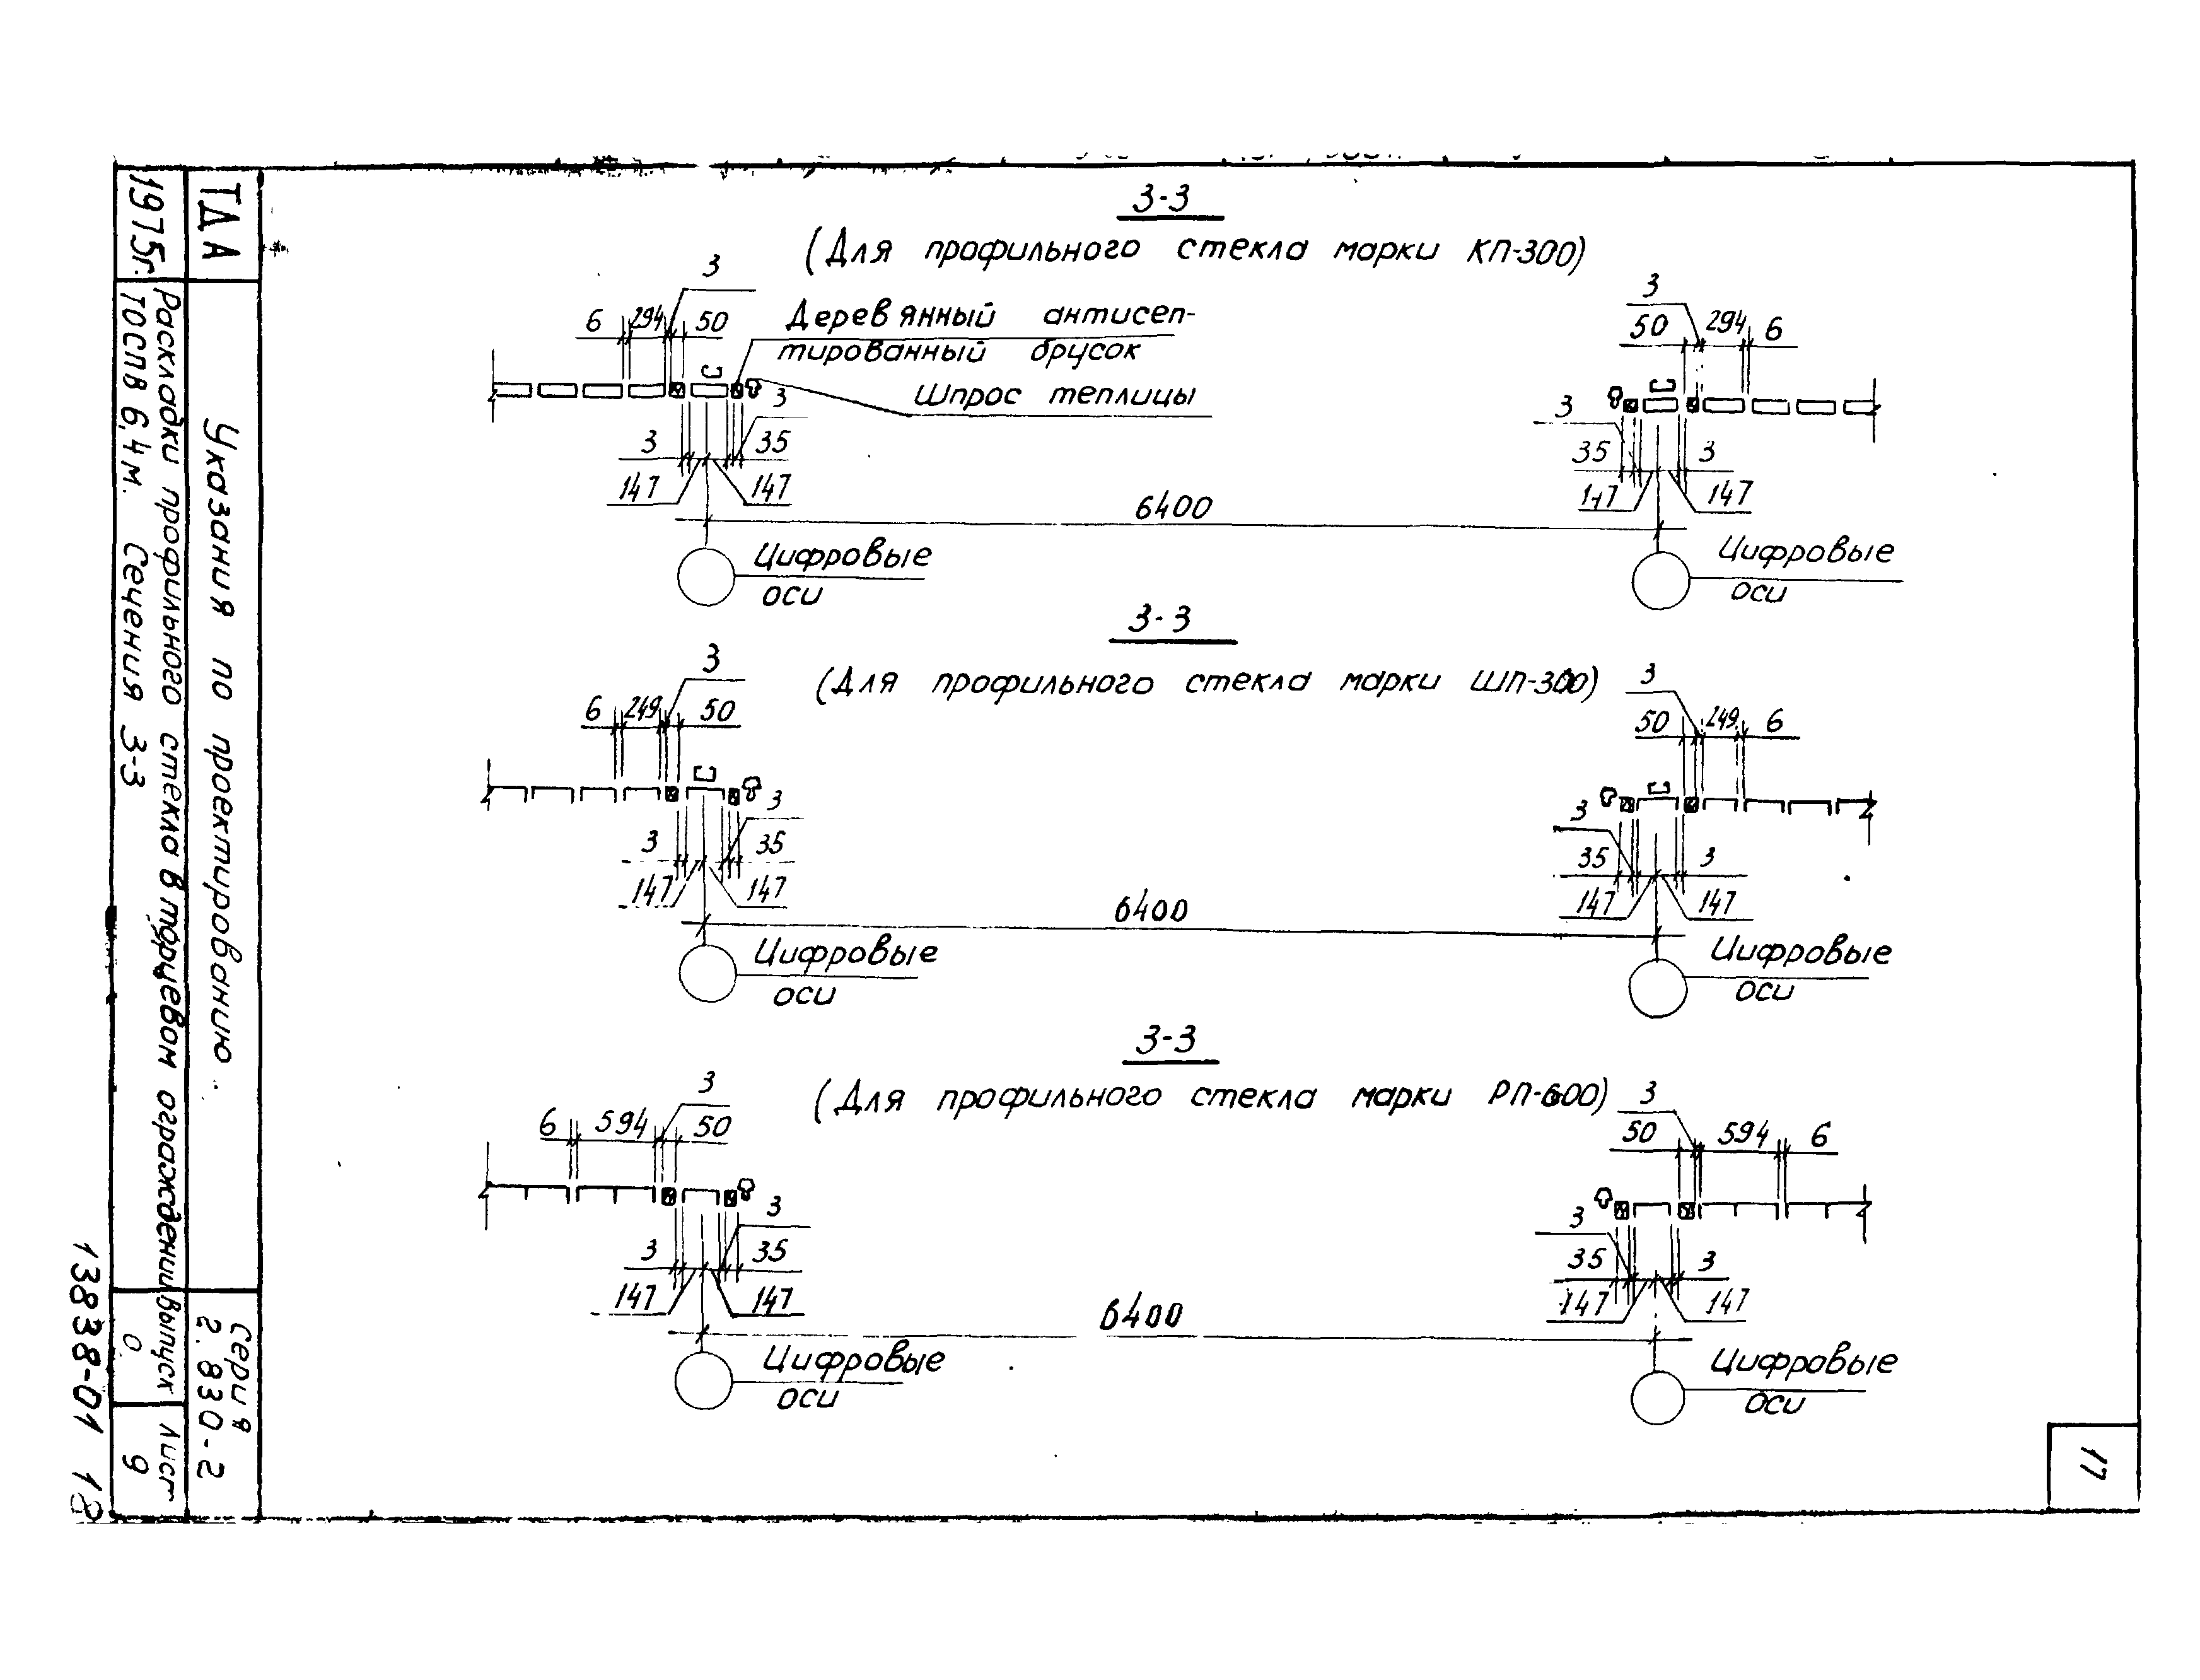 3-3
(Для профильного стекла марки КП-300)
3
6 294 50
Деревянный антисеп-
тированный брусок
Шпрос теплицы
3
3 35
147 147
3
50 294 6
3
35 3
147 147
6400
Цифровые
оси
Цифровые
оси
3-3
(Для профильного стекла марки ШП-300)
3
6 249 50
3
3 35
147 147
3
50 249 6
3
35 3
147 147
6400
Цифровые
оси
Цифровые
оси
3-3
(Для профильного стекла марки РП-600)
3
6 594 50
3
3 35
147 147
3
50 594 6
3
35 3
147 147
6400
Цифровые
оси
Цифровые
оси
17
ТДА
1975г.
Указания по проектированию
Раскладки профильного стекла в торцевом ограждении
ТОСПВ 6,4м. Сечения 3-3
Серия
2.830-2
Выпуск
0
Лист
9
13838-01 18